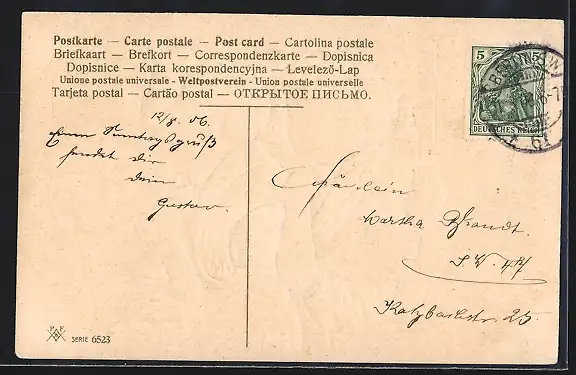 Postkarte — Carte postale — Post card — Cartolina postale
Briefkaart — Brefkort — Correspondenzkarte — Dopisnica
Dopisnice — Karta korespondencyjna — Levelező-Lap
Unione postale universale - Weltpostverein - Union postale universelle
Tarjeta postal — Cartão postal — ОТКРЫТОЕ ПИСЬМО.
5 5
DEUTSCHES REICH
BERLIN S.W.
61
12/8. 06.
Einen Sonntagsgruß
sendet dir
dein
Gustav.
Fräulein
Martha Brandt.
S. W. 47
Katzbachstr. 25
P. F. B.
SERIE 6523